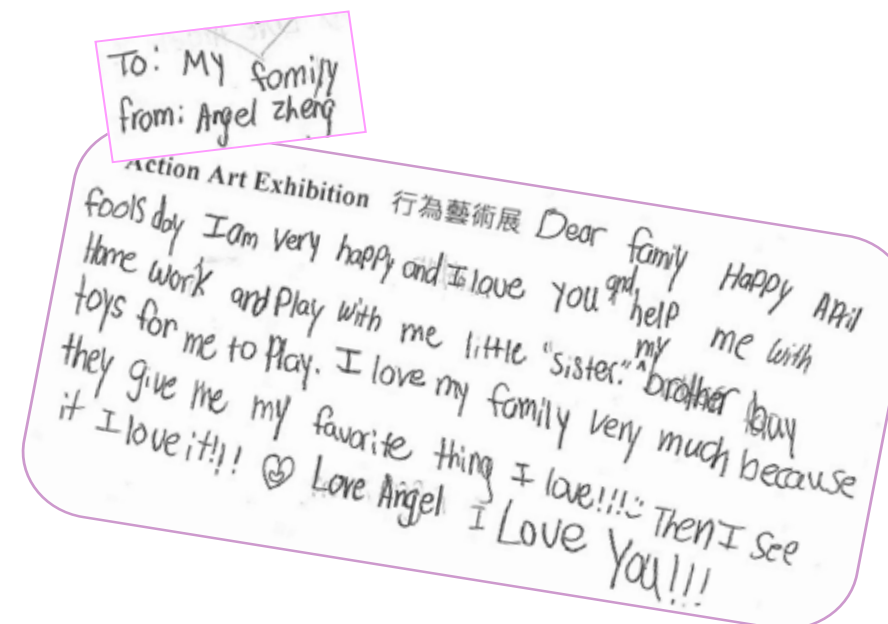 To: My family
from: Angel Zheng
Action Art Exhibition 行為藝術展 Dear family Happy April
fools day I am very happy and I love you and help me with
Home work and Play with me little "sister." my brother buy
toys for me to Play. I love my family very much because
they give me my favorite thing I love!!! Then I see
it I love it!!! Love Angel I Love You!!!